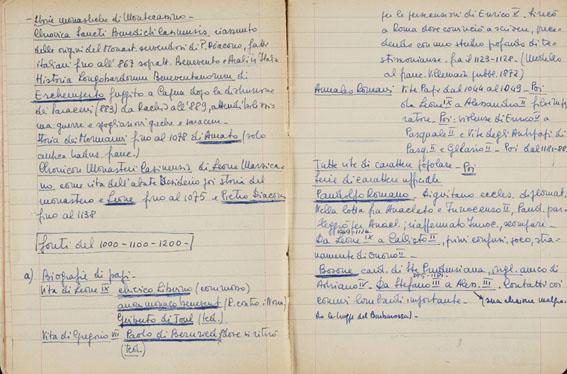 - Storie monastiche di Montecassino -
Chronica Sancti Benedicti Casinensis, riassunto
delle origini del Monast. servendosi di P. Diacono, fatti
italiani fino all'867 sopratt. Benevento e Arabi in Italia
Historia Longobardorum Beneventanorum di
Erchemperto fuggito a Capua dopo la distruzione
dei Saraceni (883) da Rachis all'889,
ma guerre e spogliazioni greche e saracene -
Storia dei Normanni fino al 1078 di Amato (solo
antica traduz. franc.)
Chronicon Monasterii Casinensis di Leone Marsica-
no, come vita dell'abate Desiderio poi storia del
monastero e Leone fino al 1075 e Pietro Diacono
fino al 1138
Fonti del 1000-1100-1200-
a) Biografie di papi -
Vita di Leone IX enrico Liberno
anon. monaco benevent
Guiberto di Toul (ted.)
Vita di Gregorio VII Paolo di Bernried, dove si ritirò
(ted.)
per le persecuzioni di Enrico V.
a Roma dove cominciò a scriver,
dendo con uno studio profondo di te-
stimonianze. fra il 1123-1128.
Annales Romani Vite Papi dal 1044 al 1049 - Poi
da Leone IX a Alessandro II filoimpe-
ratore - Poi: violenze di Enrico V a
Pasquale II e Vite degli Antipapi di
Pasq. II e Gelasio II - Poi dal 1181-88.
Tutte vite di carattere popolare - Poi
serie di carattere ufficiale
Pandolfo Romano. Dignitario eccles. diplomat.
Nella lotta fra Anacleto e Innocenzo II, Pand. par-
teggiò per Anacl.; riaffermato Innoc., scompar.
Da Leone IX a Callisto II, primi confusi,
namente di Onorio II -
Bosone card. di Sta Pudenziana, ingl. amico di
Adriano IV. Da Stefano III a Aless. III. Contatti coi
comuni lombardi importante.
do le truppe del Barbarossa) -